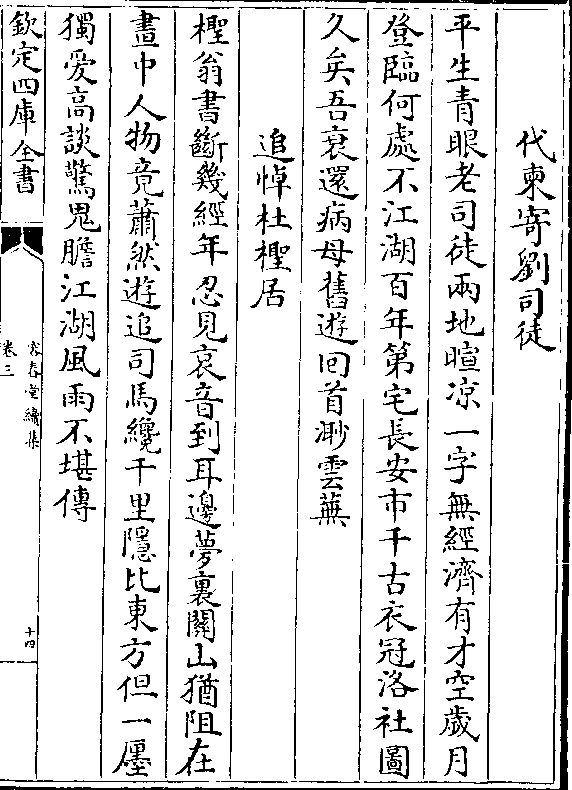 代柬寄劉司徒
平生青眼老司徒兩地暄凉一字無經濟有才空歲月
登臨何處不江湖百年第宅長安市千古衣冠洛社圖
久矣吾衰還病母舊遊回首渺雲蕪
追悼杜檉居
檉翁書斷幾經年忍見哀音到耳邊夢裏關山猶阻在
畫中人物竟蕭然遊追司馬纔千里隱比東方但一廛
獨爱高談驚鬼膽江湖風雨不堪傳
欽定四庫全書
容春堂續集
卷三
十四